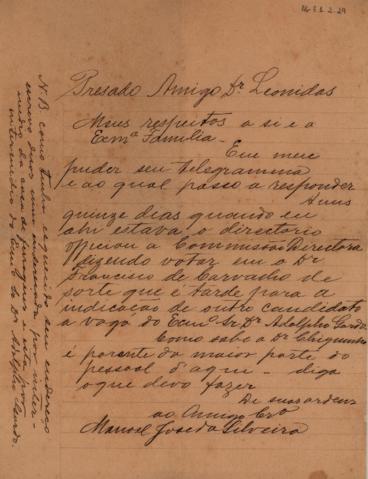 Presado Amigo Dr Leonidas
Meus respeitos a si e a
Exmª Familia _
Em meu
puder seu telegramma
e ao qual passo a responder
A uns
quinze dias quando eu
ahi estava o directorio
opiciou a Commissão Directora
dizendo votar em o Dr
Francisco de Carvalho de
sorte que é tarde para a
indicação de outro candidato
a vaga do Exmº Sr Dr Adolpho
Como sabe o Dr
é parente da maior parte do
pessoal d'aqui _ diga
o que devo fazer
De suas ordens
ao Amigo Crº
Manoel José da Silveira
N.B como tenha esquecido seu endereço
por inter-
medio da
intermedio do Exmº Sr Dr Adolpho